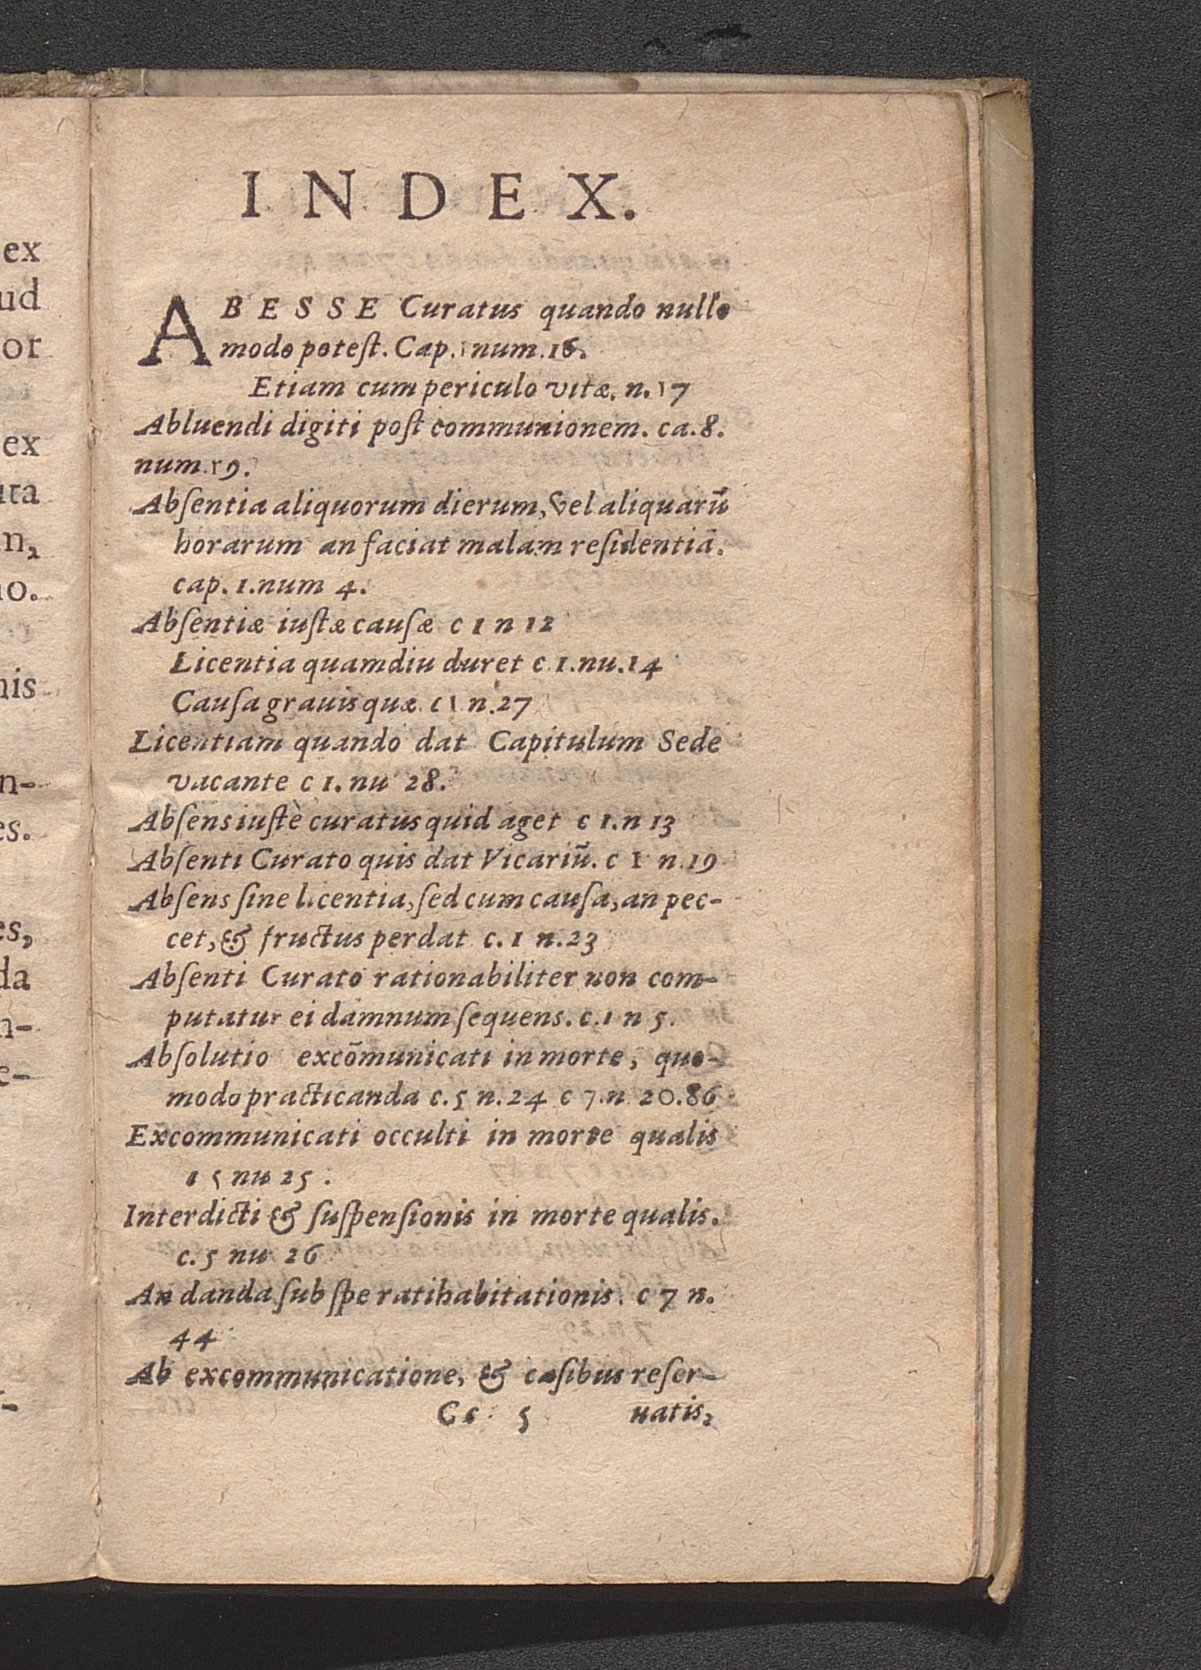 ex
ud
or
ex
uta
n,
no.
nis
n-
es.
es,
da
n-
e-
-
INDEX.
ABESSE Curatus quando nullo
modo potest. Cap. 1 num. 16.
Etiam cum periculo vitæ. n. 17
Abluendi digiti post communionem. ca. 8.
num. 19.
Absentia aliquorum dierum, vel aliquarū
horarum an faciat malam residentiā.
cap. 1. num 4.
Absentiæ iustæ causæ c 1 n 12
Licentia quamdiu duret c 1. nu. 14
Causa grauis quæ c 1 n. 27
Licentiam quando dat Capitulum Sede
vacante c 1. nu 28.
Absens iustè curatus quid aget c 1. n 13
Absenti Curato quis dat Vicariū. c 1 n. 19
Absens sine licentia, sed cum causa, an pec-
cet, & fructus perdat c. 1 n. 23
Absenti Curato rationabiliter non com-
putatur ei damnum sequens. c. 1 n 5.
Absolutio excōmunicati in morte, quo-
modo practicanda c. 5 n. 24 c 7. n 20. 86
Excommunicati occulti in morte qualis
1 5 nu 25.
Interdicti & suspensionis in morte qualis.
c. 5 nu 26
An danda sub spe ratihabitationis. c 7 n.
44
Ab excommunicatione, & casibus reser-
Cc 5 uatis,